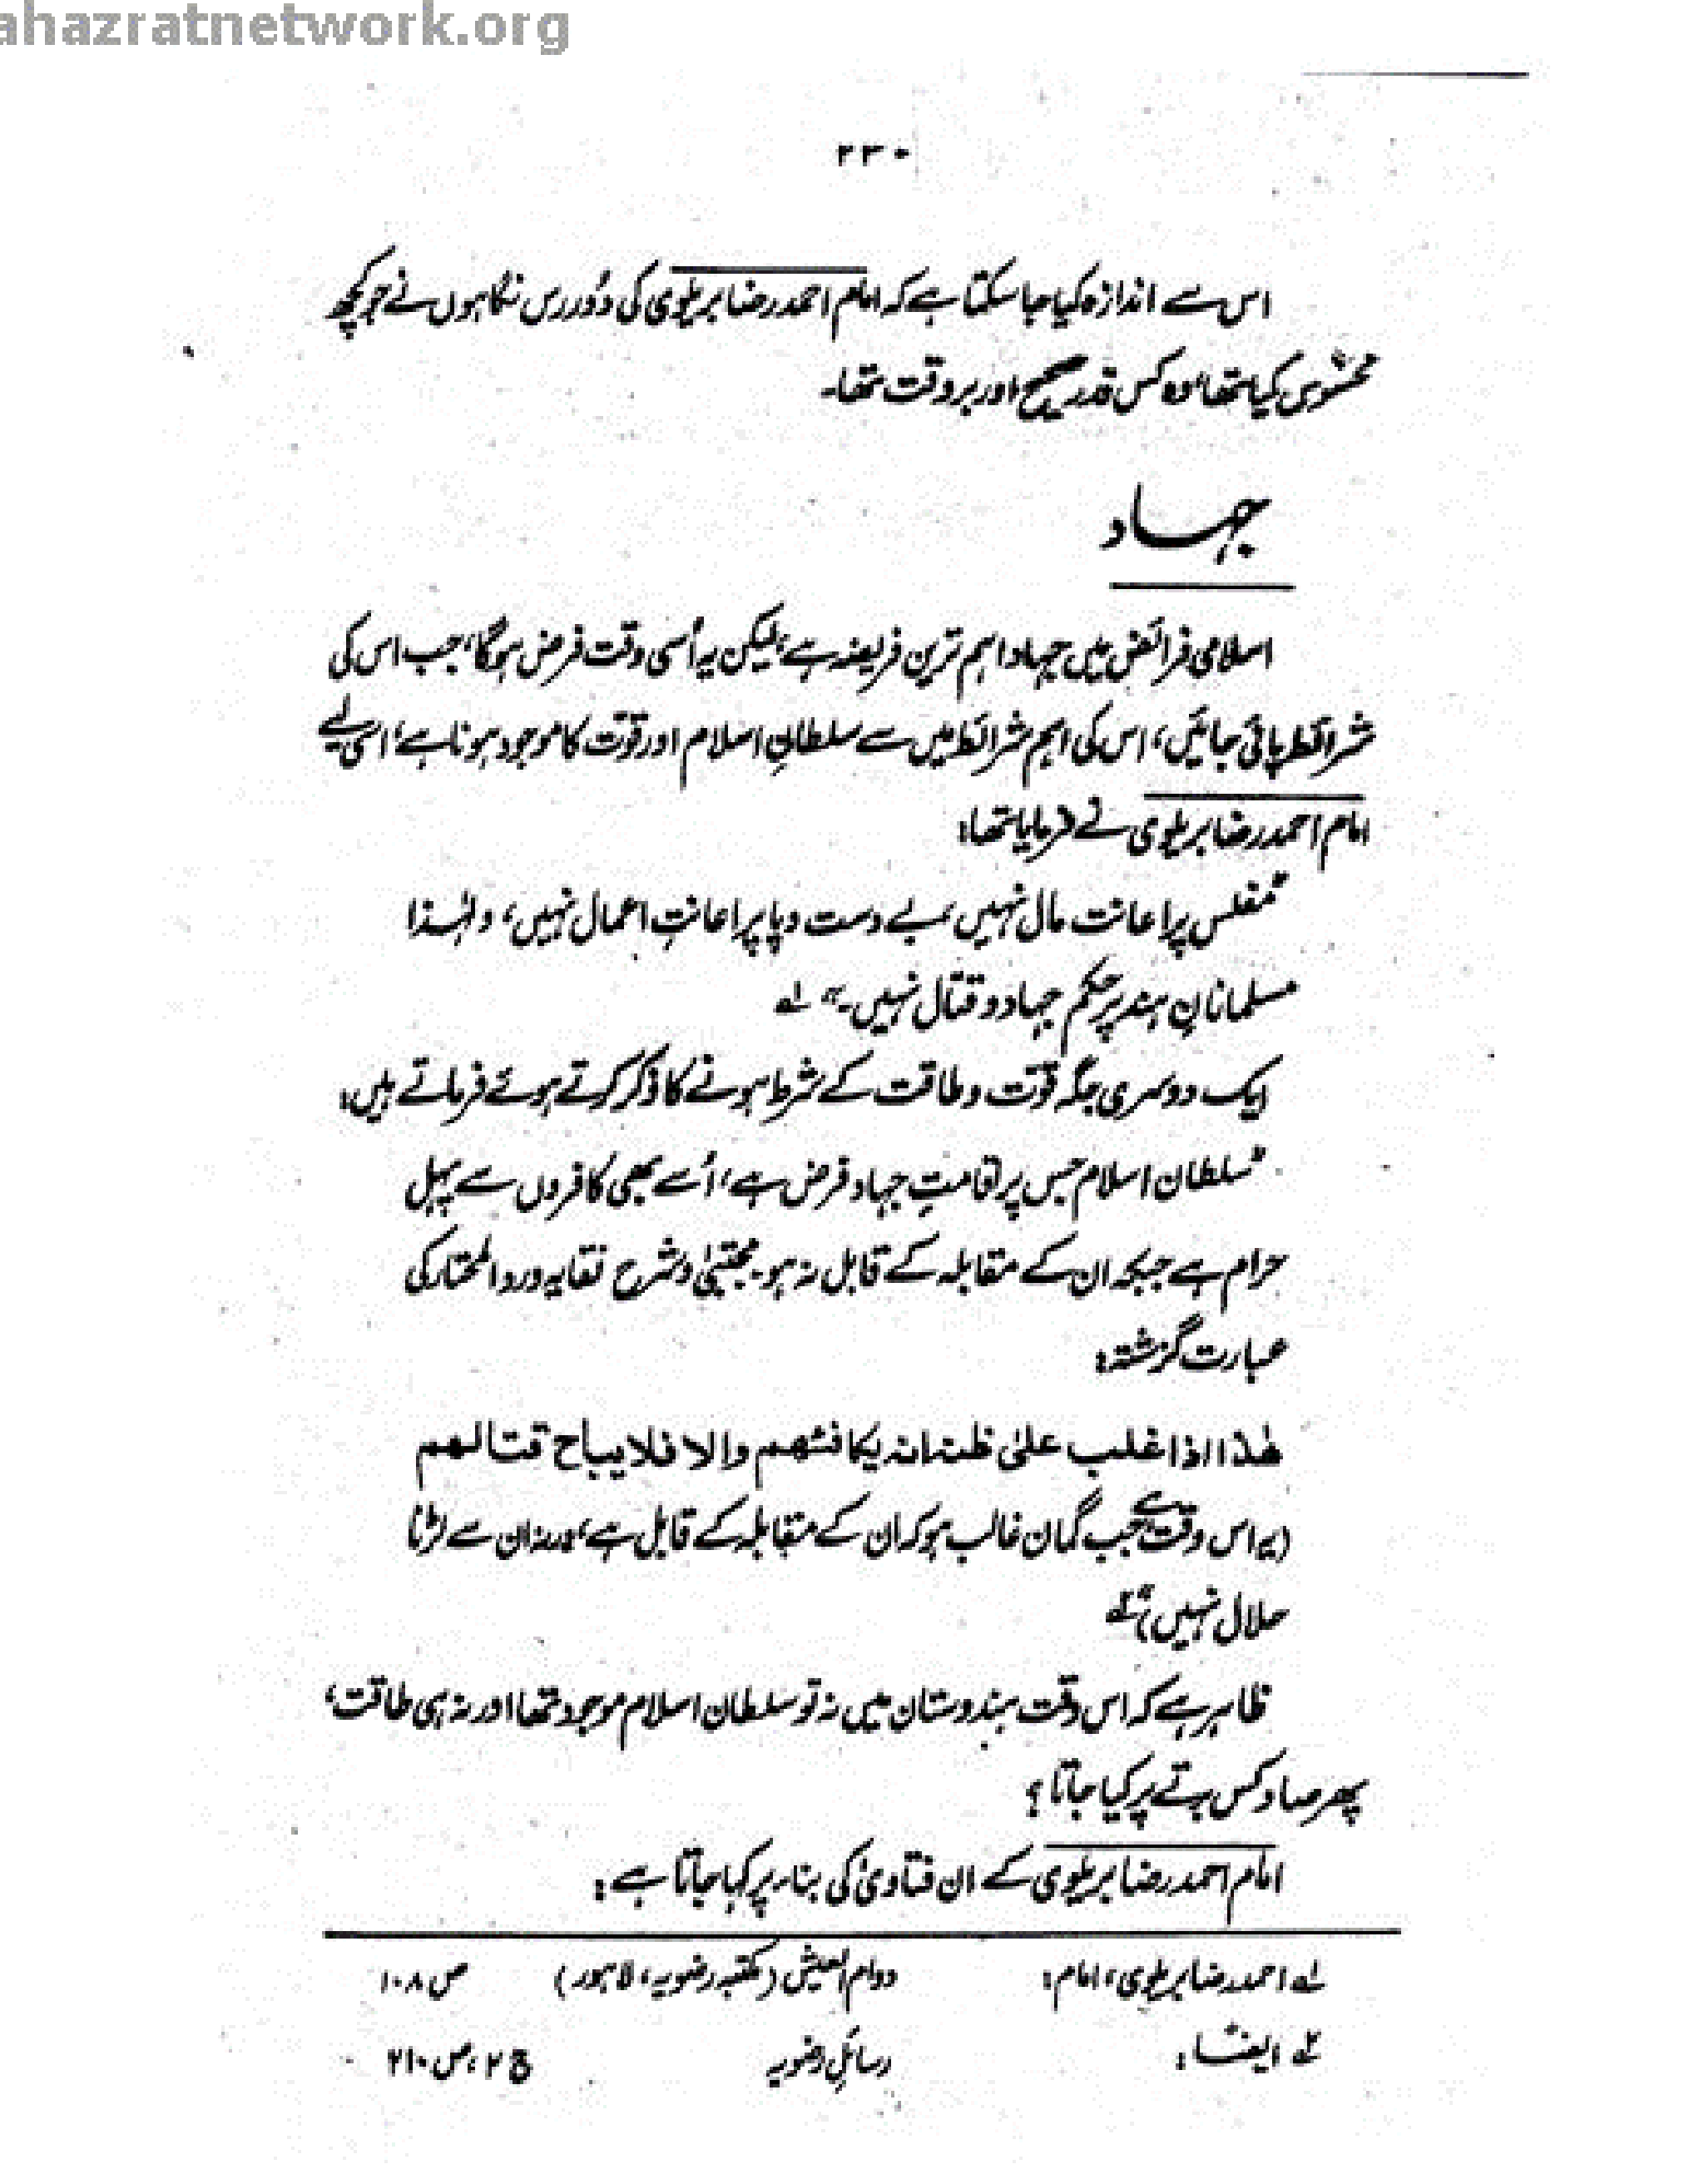 ahazratnetwork.org
۲۳۰
اس سے اندازہ کیا جا سکتا ہے کہ امام احمد رضا بریلوی کی دُور رس نگاہوں نے جو کچھ
محسوس کیا تھا، وہ کس قدر صحیح اور بروقت تھا۔
جہاد
اسلامی فرائض میں جہاد اہم ترین فریضہ ہے، لیکن یہ اُسی وقت فرض ہوگا، جب اس کی
شرائط پائی جائیں، اس کی اہم شرائط میں سے سلطانِ اسلام اور قوّت کا موجود ہونا ہے، اسی لیے
امام احمد رضا بریلوی نے فرمایا تھا:
"مفلس پر اعانت مال نہیں، بے دست و پا پر اعانتِ اعمال نہیں، ولہٰذا
مسلمانانِ ہند پر حکم جہاد و قتال نہیں۔" لہ
ایک دوسری جگہ قوّت و طاقت کے شرط ہونے کا ذکر کرتے ہوئے فرماتے ہیں:
"سلطان اسلام جس پر اقامتِ جہاد فرض ہے، اُسے بھی کافروں سے پہل
حرام ہے جبکہ ان کے مقابلہ کے قابل نہ ہو۔ مجتبیٰ و شرح نقایہ و رد المحتار کی
عبارت گزشتہ:
ھٰذا اذا غلب علیٰ ظنہ انہ یکافئھم والا فلا یباح قتالھم
(یہ اس وقت ہے جب گمان غالب ہو کہ ان کے مقابلہ کے قابل ہے، ورنہ ان سے لڑنا
حلال نہیں)" ٢ہ
ظاہر ہے کہ اس وقت ہندوستان میں نہ تو سلطان اسلام موجود تھا اور نہ ہی طاقت،
پھر جہاد کس بِتے پر کیا جاتا؟
امام احمد رضا بریلوی کے ان فتاویٰ کی بناء پر کہا جاتا ہے:
لہ احمد رضا بریلوی، امام: دوام العیش (مکتبہ رضویہ، لاہور) ص ۱۰۸
٢ہ ایضًا: رسائلِ رضویہ ج ۲، ص ۲۱۰